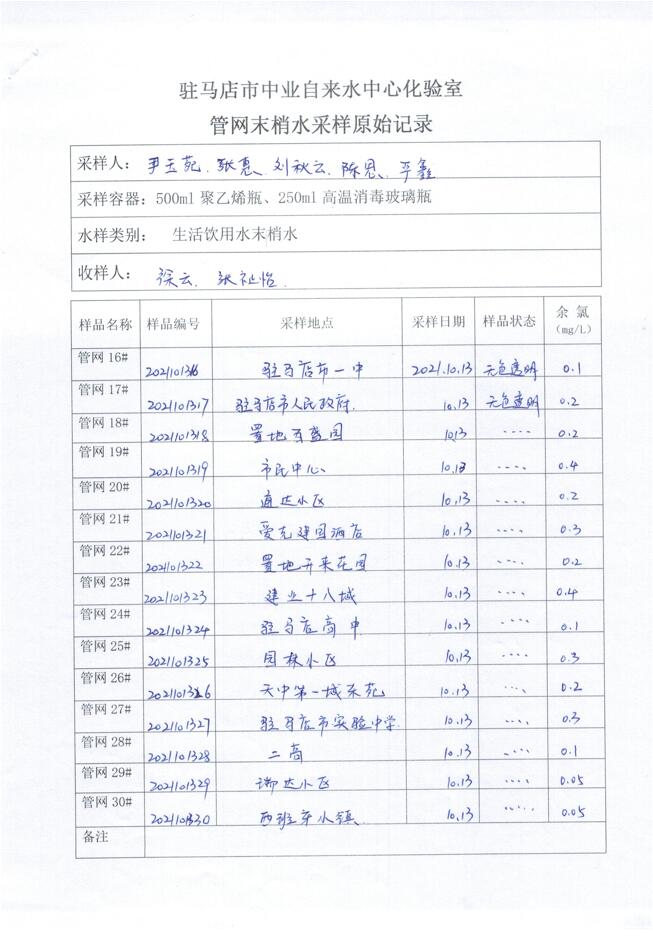 驻马店市中业自来水中心化验室
管网末梢水采样原始记录
采样人：尹玉苑、张惠、刘秋云、陈恩、平鑫
采样容器：500ml聚乙烯瓶、250ml高温消毒玻璃瓶
水样类别： 生活饮用水末梢水
收样人： 徐云、张祉怡
样品名称 样品编号 采样地点 采样日期 样品状态 余氯（mg/L）
管网16# 2021101316 驻马店市一中 2021.10.13 无色透明 0.1
管网17# 2021101317 驻马店市人民政府 10.13 无色透明 0.2
管网18# 2021101318 置地百盛园 10.13 ---- 0.2
管网19# 2021101319 市民中心 10.13 ---- 0.4
管网20# 2021101320 通达小区 10.13 ---- 0.2
管网21# 2021101321 爱克建国酒店 10.13 ---- 0.3
管网22# 2021101322 置地开来花园 10.13 ---- 0.2
管网23# 2021101323 建业十八城 10.13 ---- 0.4
管网24# 2021101324 驻马店高中 10.13 ---- 0.1
管网25# 2021101325 园林小区 10.13 ---- 0.3
管网26# 2021101326 天中第一城东苑 10.13 ---- 0.2
管网27# 2021101327 驻马店市实验中学 10.13 ---- 0.3
管网28# 2021101328 二高 10.13 ---- 0.1
管网29# 2021101329 瑞达小区 10.13 ---- 0.05
管网30# 2021101330 西班牙小镇 10.13 ----- 0.05
备注